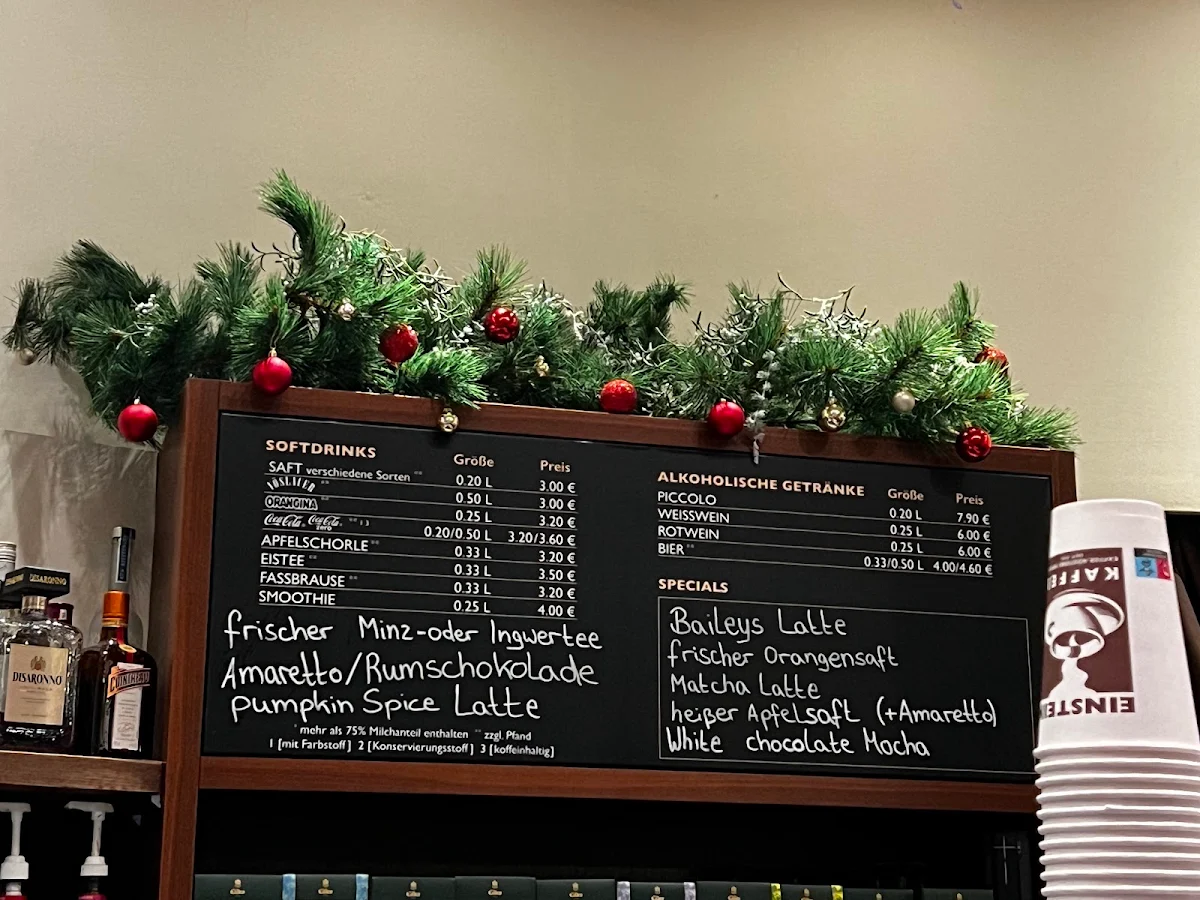 SOFTDRINKS Größe Preis
SAFT verschiedene Sorten ** 0.20 L 3.00 €
VÖSLAUER ** 0.50 L 3.00 €
ORANGINA ** 0.25 L 3.20 €
Coca-Cola, Coca-Cola zero ** 1 3 0.20/0.50 L 3.20/3.60 €
APFELSCHORLE ** 0.33 L 3.20 €
EISTEE ** 0.33 L 3.50 €
FASSBRAUSE ** 0.33 L 3.20 €
SMOOTHIE 0.25 L 4.00 €
frischer Minz-oder Ingwertee
Amaretto/Rumschokolade
pumpkin Spice Latte
* mehr als 75% Milchanteil enthalten ** zzgl. Pfand
1 [mit Farbstoff] 2 [Konservierungsstoff] 3 [koffeinhaltig]
ALKOHOLISCHE GETRÄNKE Größe Preis
PICCOLO 0.20 L 7.90 €
WEISSWEIN 0.25 L 6.00 €
ROTWEIN 0.25 L 6.00 €
BIER ** 0.33/0.50 L 4.00/4.60 €
SPECIALS
Baileys Latte
frischer Orangensaft
Matcha Latte
heißer Apfelsaft (+Amaretto)
White chocolate Mocha
DISARONNO
DISARONNO
COINTREAU
KAFFEE
EINSTEIN